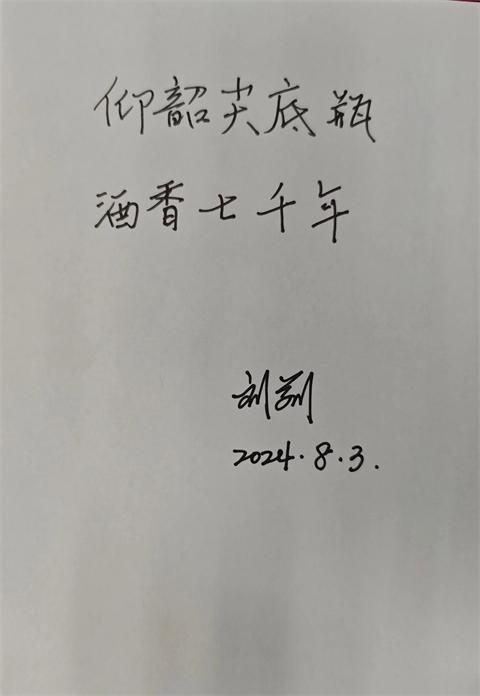 仰韶尖底瓶
酒香七千年
刘莉
2024.8.3.